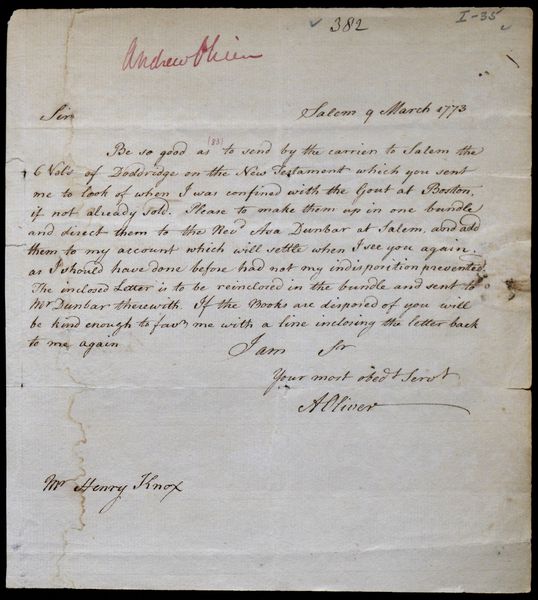 382
I-35
Andrew Oliver
Sir
Salem 9 March 1773
[83]
Be so good as to send by the carrier to Salem the
6 Vols of Doddridge on the New Testament which you sent
me to look of when I was confined with the Gout at Boston,
if not already sold. Please to make them up in one bundle
and direct them to the Revd Asa Dunbar at Salem, and add
them to my account which will settle when I see you again,
as I should have done before had not my indisposition prevented.
The inclosed Letter is to be reinclosed in the bundle and sent to
Mr Dunbar therewith. If the Books are disposed of you will
be kind enough to favr me with a line inclosing the letter back
to me again
I am Sir
Your most obedt Servt
A Oliver
Mr Henry Knox